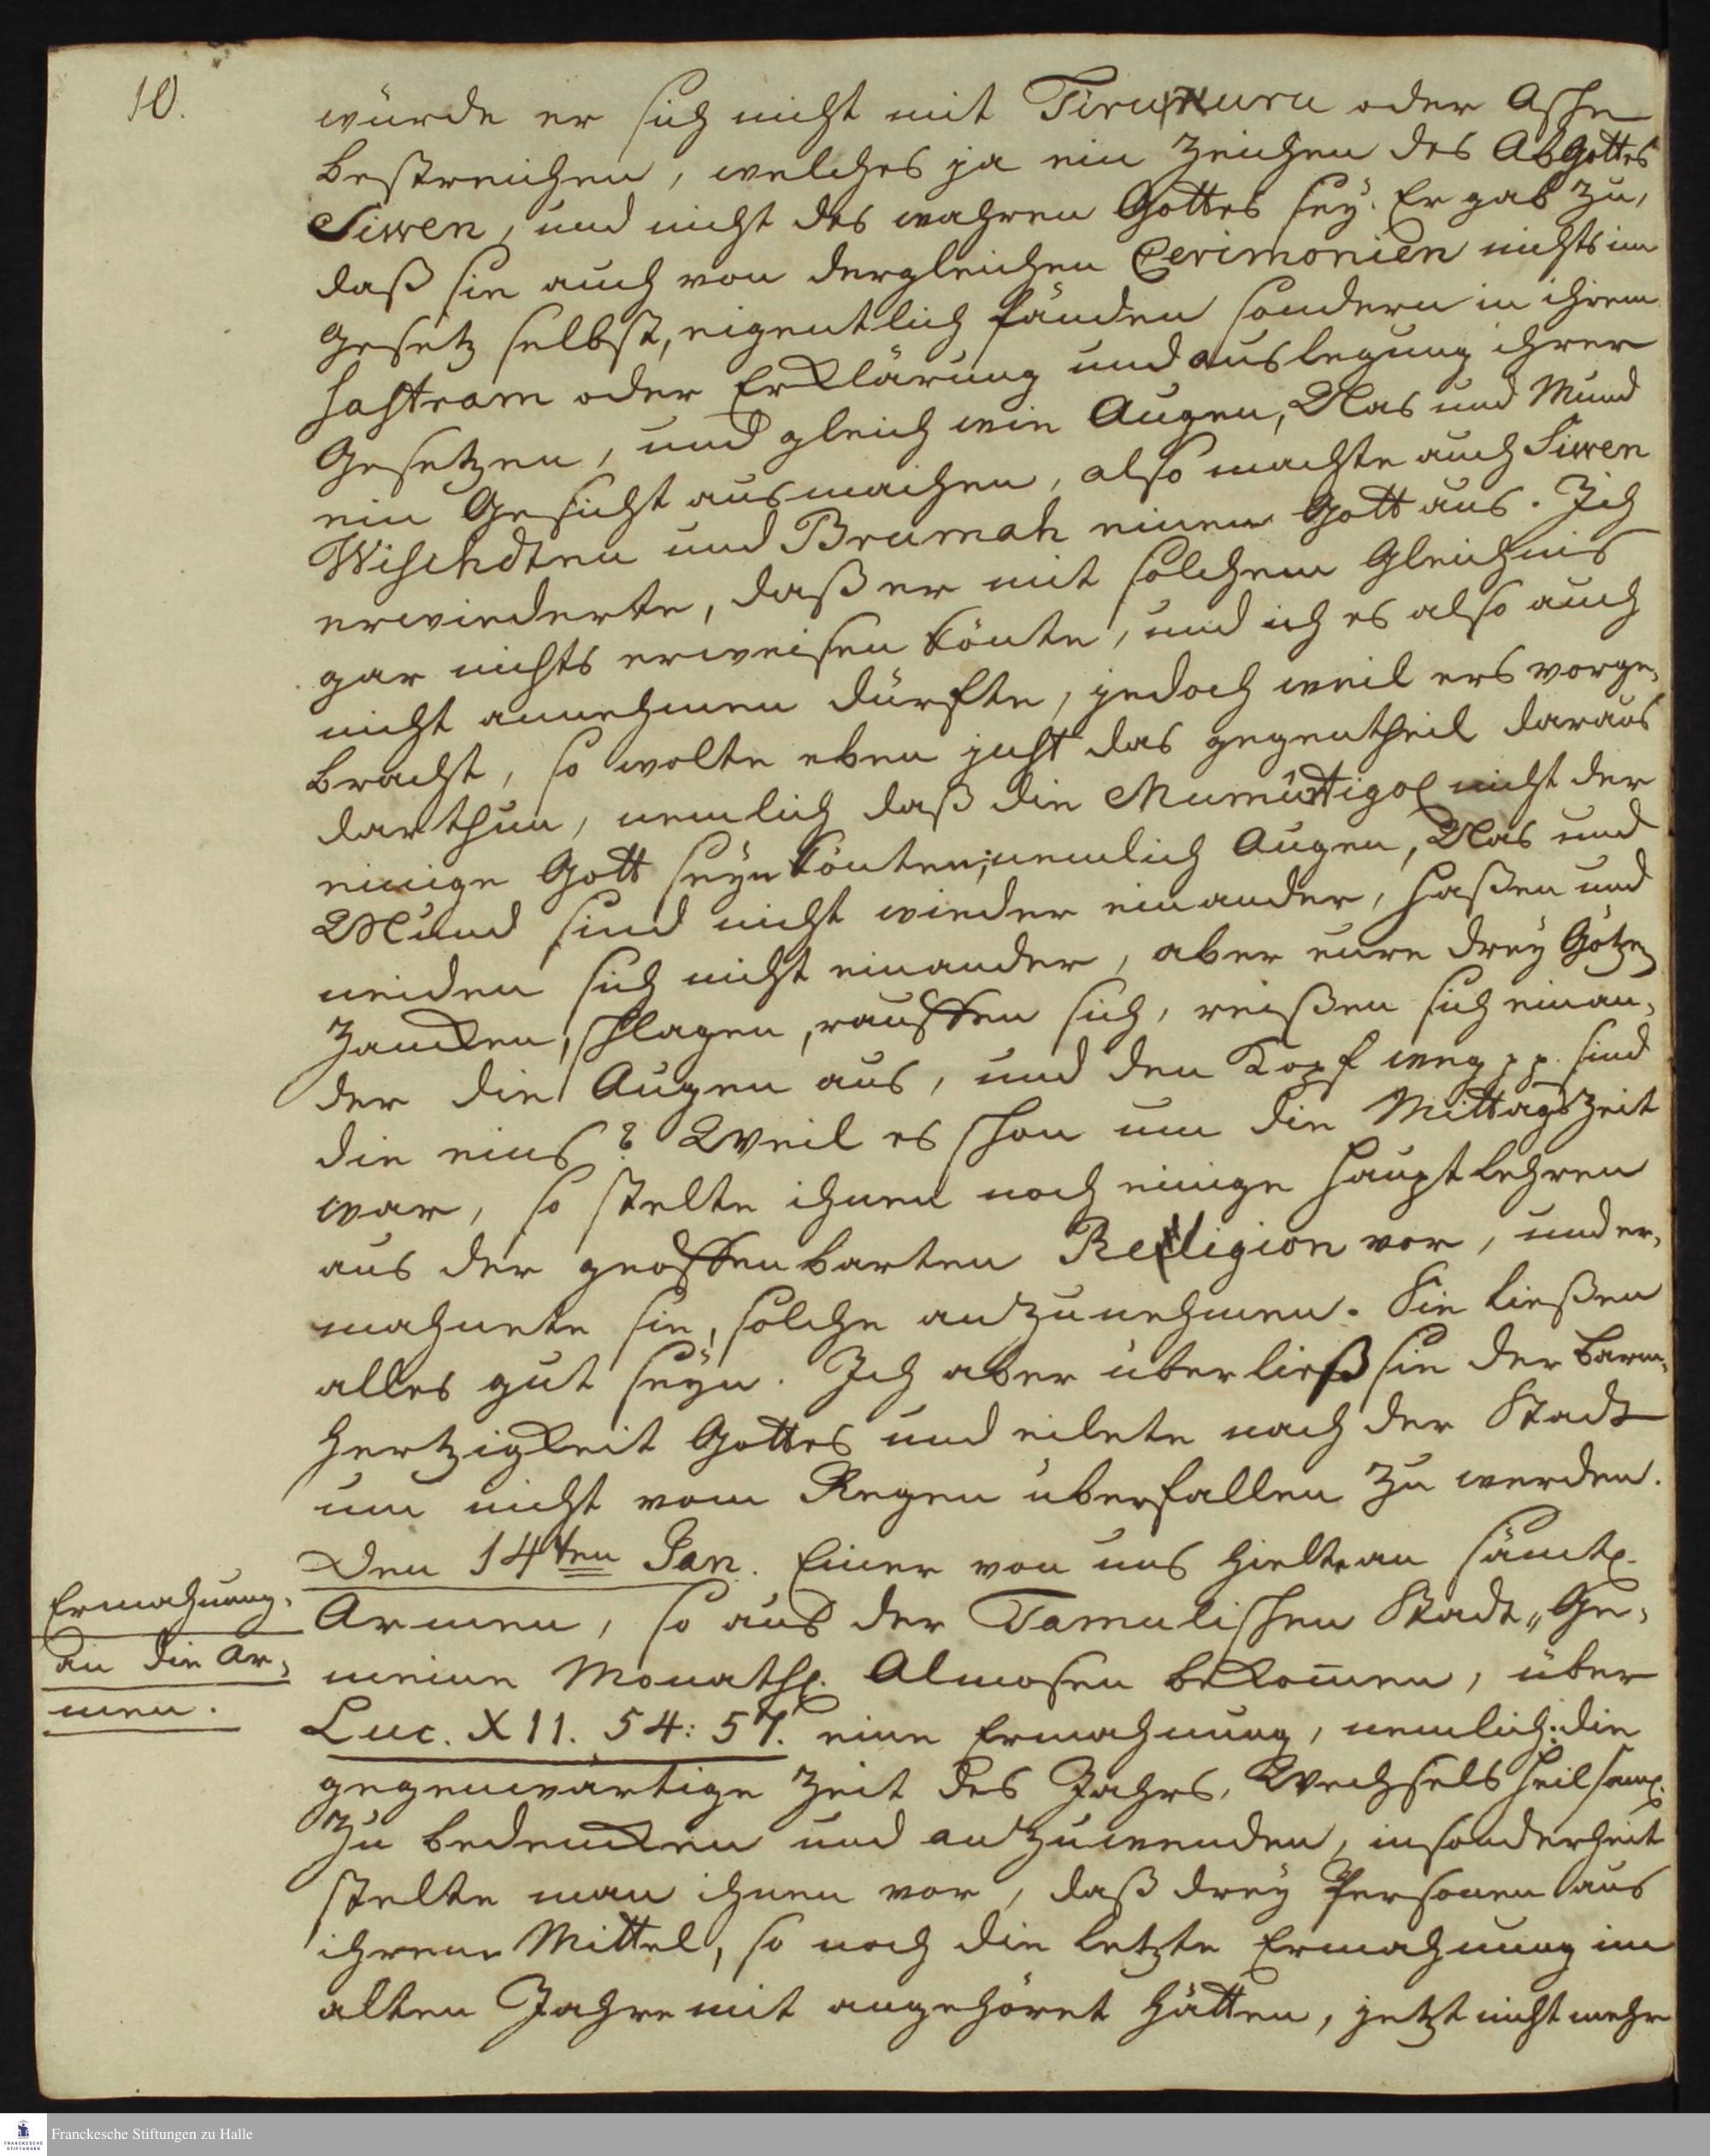 10.
würde er sich nicht mit Tirunuru oder Asche
bestreichen, welches ja ein Zeichen des Abgottes
Siwen, und nicht des wahren Gottes sey. Er gab zu,
daß sie auch von dergleichen Cerimonien nichts im
Gesetz selbst, eigentlich fänden sondern in ihrem
Sastram oder Erklärung und auslegung ihrer
Gesetzen, und gleich wie Augen, Nas und Mund
ein Gesicht ausmachen, also machte auch Siwen
Wischdtnu und Brumah einen Gott aus. Ich
erwiederte, daß er mit solchem Gleichnis
gar nichts erweisen könte, und ich es also auch
nicht annehmen dürfte, jedoch weil ers vorge,
bracht, so wolte eben just das gegentheil daraus
darthun, nemlich daß die Mumûrtigöl nicht der
einige Gott seyn könten; nemlich Augen, Nas und
Mund sind nicht wieder einander, haßen und
neiden sich nicht einander, aber eure drey Götzen
zancken, schlagen, rauffen sich, reißen sich einan,
der die Augen aus, und den Kopf weg pp. sind
die eins? Weil es schon um die Mittagszeit
war, so stelte ihnen noch einige Hauptlehren
aus der geoffenbarten Religion vor, und er,
mahnete sie, solche anzunehmen. Sie ließen
alles gut seyn. Ich aber überließ sie der Barm,
hertzigkeit Gottes und eilete nach der Stadt
um nicht vom Regen überfallen zu werden.
Den 14ten Jan. Einer von uns hielte an sämtl.
Ermahnung,
an die Ar,
men.
Armen, so aus der Tamulischen Stadt„Ge,
meine Monathl. Almosen bekom̅en, über
Luc. XII. 54: 57. eine Ermahnung, nemlich: die
gegenwärtige Zeit des Jahrs, Wechsels heilsaml.
zu bedencken und anzuwenden, insonderheit
stelte man ihnen vor, daß drey Personen aus
ihrem Mittel, so noch die letzte Ermahnung im
alten Jahre mit angehöret hätten, jetzt nicht mehr
Franckesche Stiftungen zu Halle